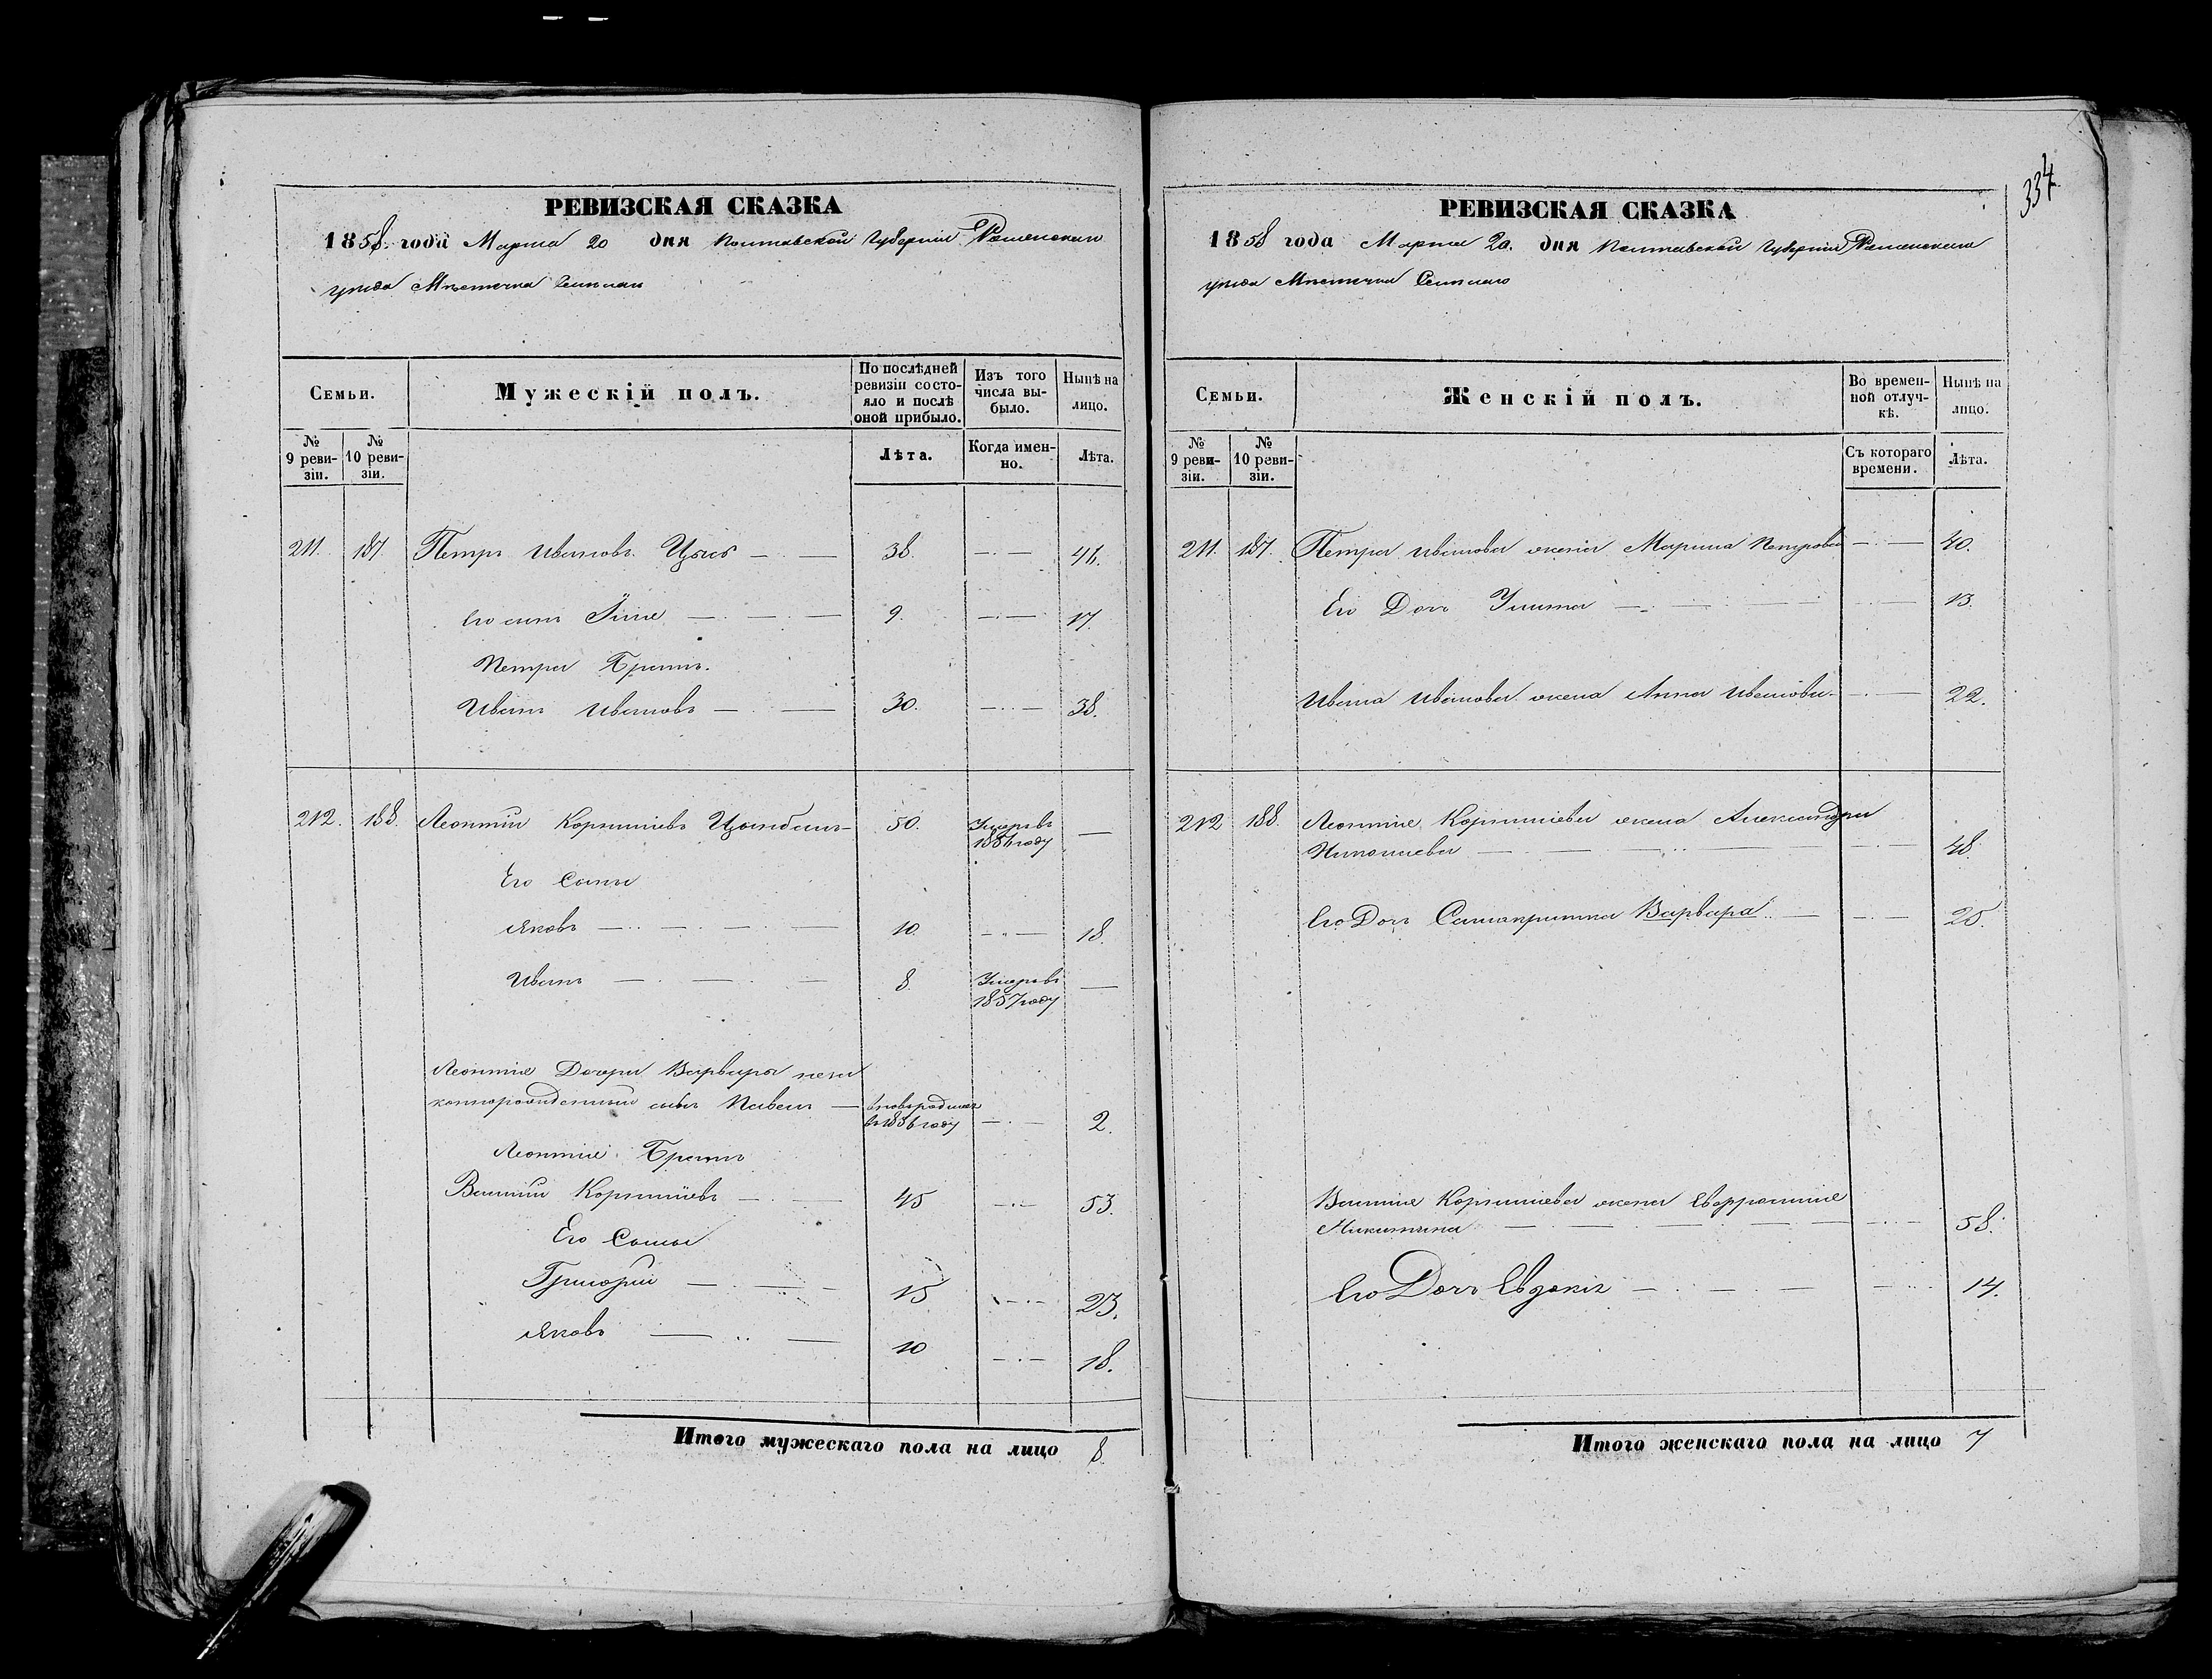 334
РЕВИЗСКАЯ СКАЗКА
1858 года Марта 20 дня Полтавской Губернiи Роменскаго
уѣзда Мѣстечка
Семьи.
Мужескiй полъ.
По послѣдней ревизiи состояло и послѣ оной прибыло.
Изъ того числа выбыло.
Нынѣ на лицо.
№ 9 ревизiи.
№ 10 ревизiи.
Лѣта.
Когда именно.
Лѣта.
211. 187. Петръ Ивановъ 38. — 46.
Его сынъ 9. — 17.
Петра Братъ.
Иванъ Ивановъ — 30. — 38.
212. 188. Леонтiй Корнилiевъ Цымбалъ 50. Умеръ въ —
году
Его Сыны
Яковъ — 10. — 18.
Иванъ — 8. Умеръ въ —
1857 году
Леонтiя Дочери Варвары неза
коннорожденный сынъ Павелъ — вновь рожденъ
въ 1856 году — 2.
Леонтiя Братъ
Василiй Корнилiевъ — 45 — 53.
Его Сыны
Григорiй — 15 — 23.
Яковъ — 10 — 18.
Итого мужескаго пола на лицо 8.
РЕВИЗСКАЯ СКАЗКА
1858 года Марта 20. дня Полтавской Губернiи Роменскаго
уѣзда Мѣстечка
Семьи.
Женскiй полъ.
Во временной отлучкѣ.
Нынѣ на лицо.
№ 9 ревизiи.
№ 10 ревизiи.
Съ котораго времени.
Лѣта.
211. 187. Петра Иванова жена Марина Петрова — 40.
Его Дочь Улита — 13.
Ивана Иванова жена Анна Иванова — 22.
212 188. Леонтiя Корнилiева жена Александра
Николаева — 48.
Его Дочь Варвара — 25.
Василiя Корнилiева жена Евфросинiя
Никитина — 58.
Его Дочь Евдокiя — 14.
Итого женскаго пола на лицо 7